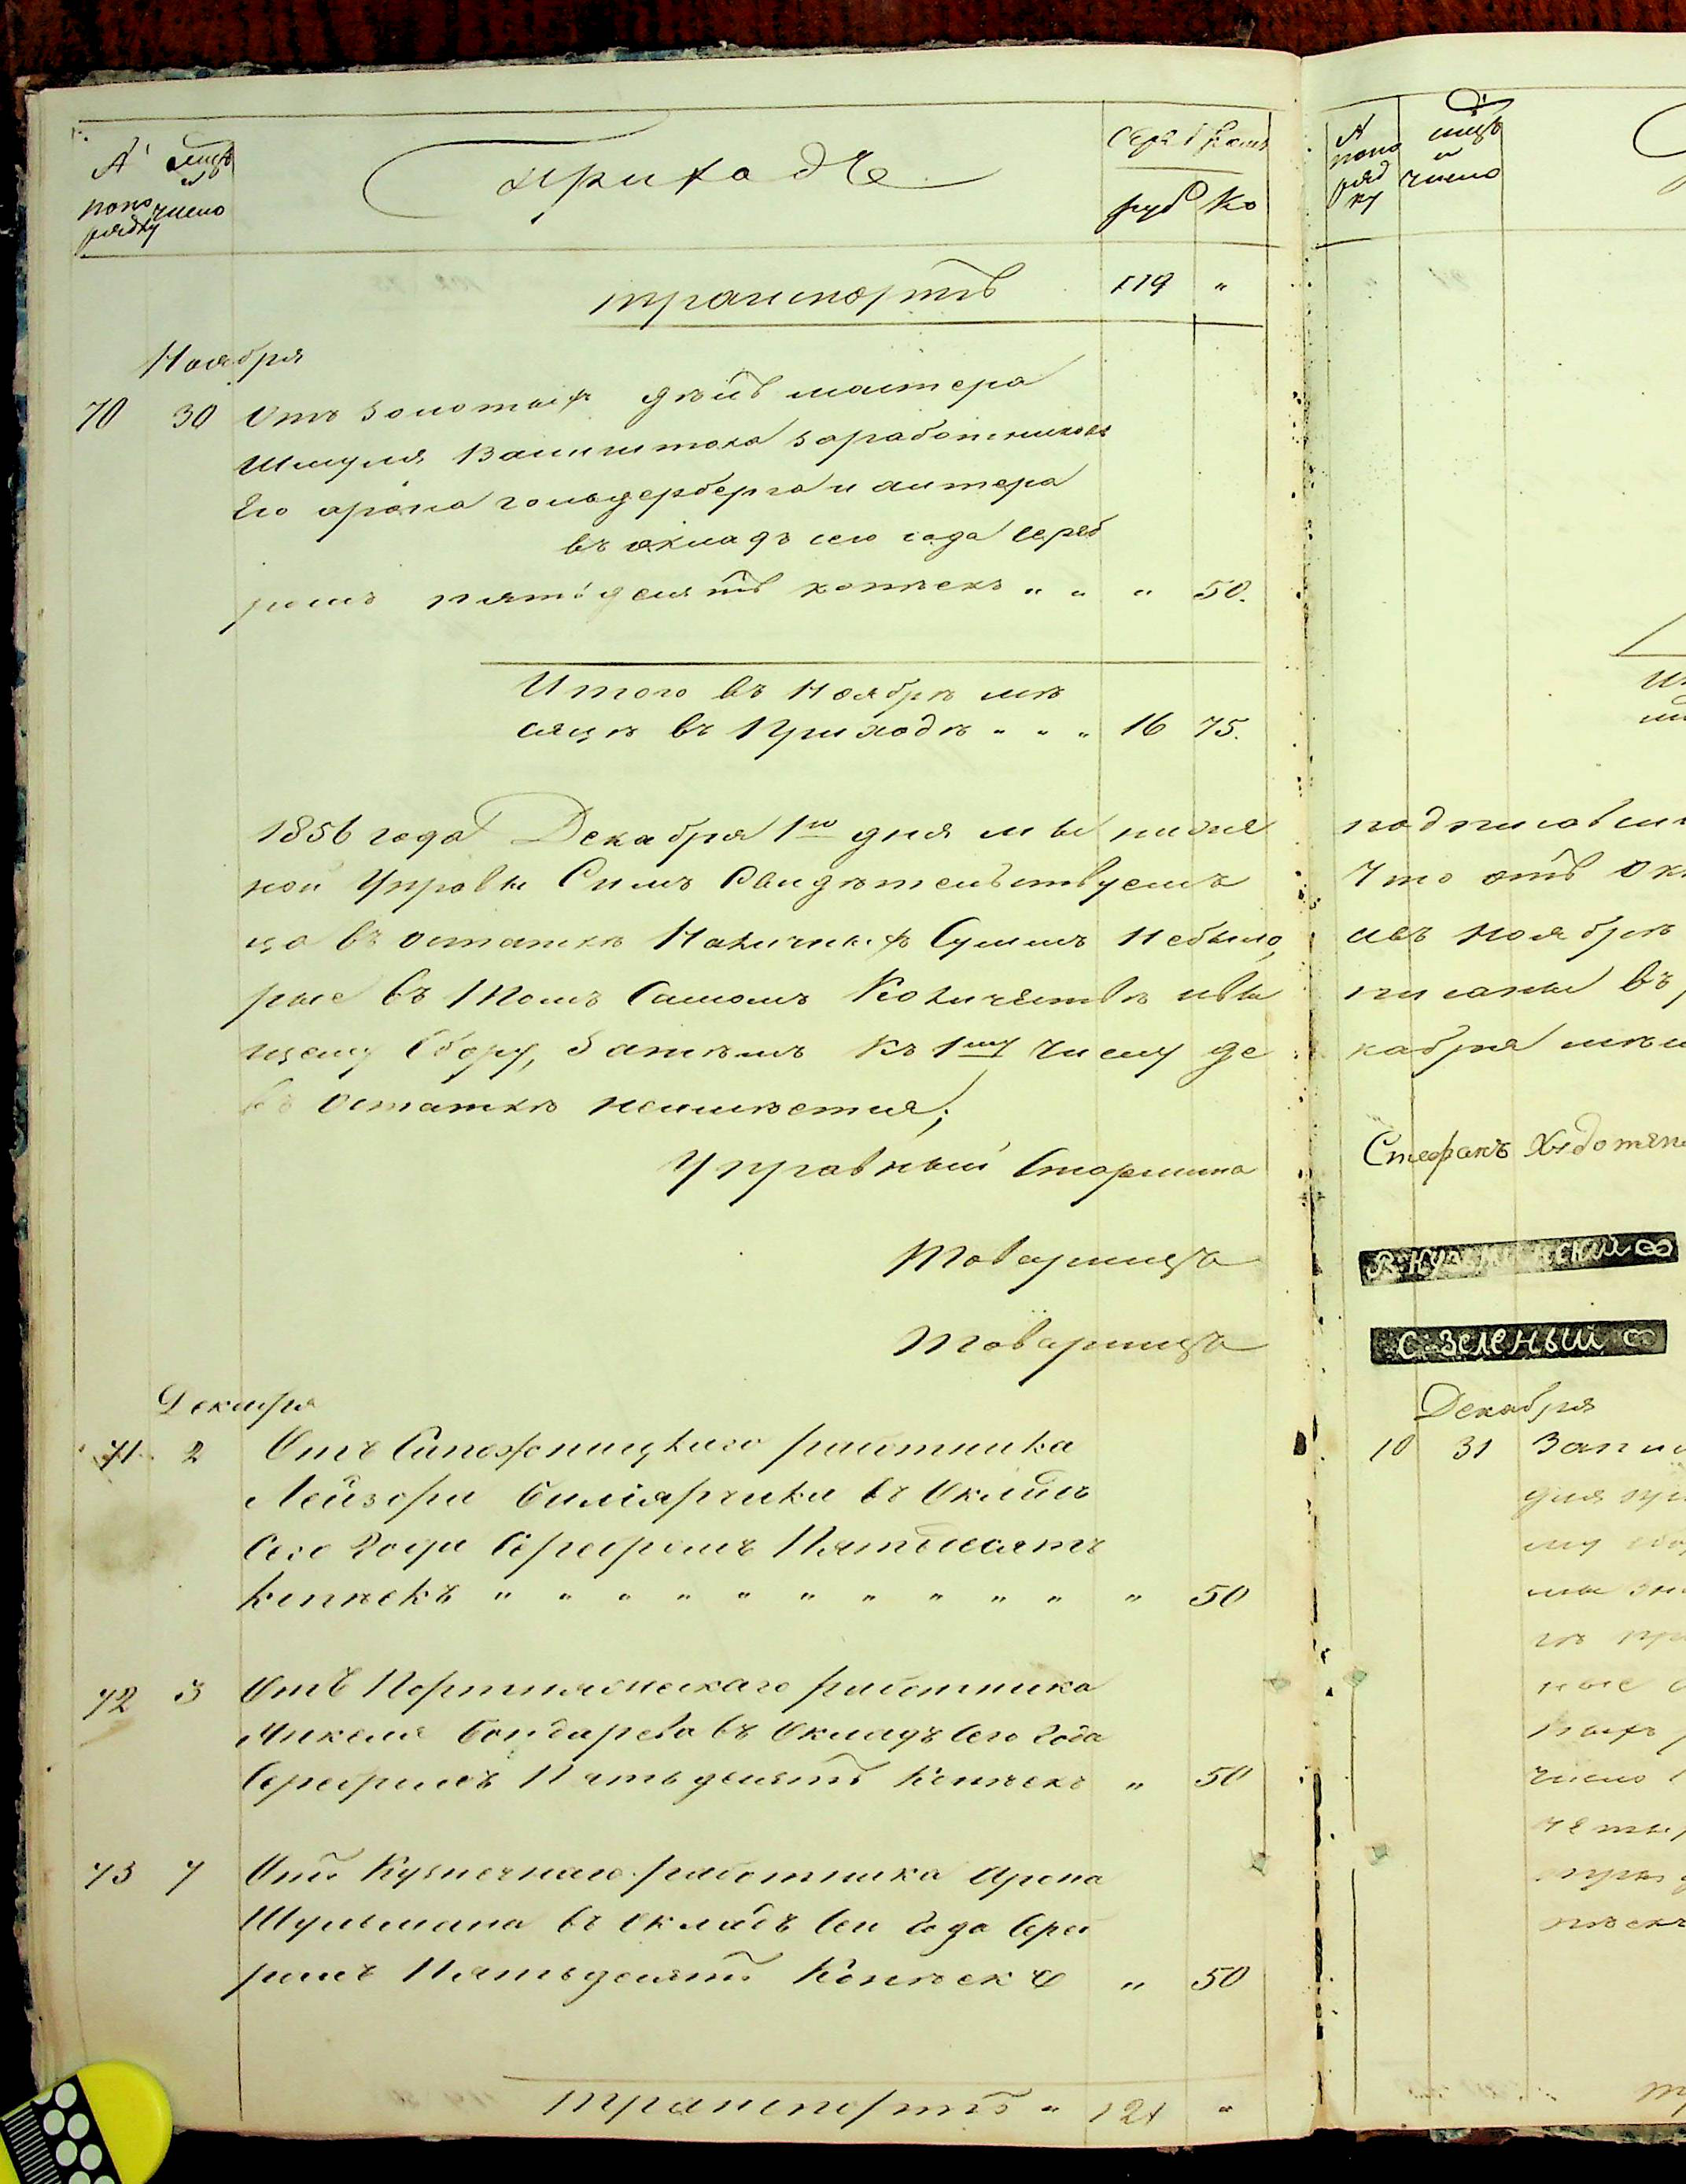 № мцъ
и
попо число
рядку
приходъ
Сереб ромъ
руб Ко
транспортъ 119 "
Ноября
70 30 Отъ золотыхъ дѣлъ мастера
Шмуля Ванштока за работниковъ
Его арона гольдерберга и антера
въ окладъ сего года сереб
ромъ пятьдесятъ копѣекъ " " " 50.
Итого въ Ноябрѣ мѣ
сяцѣ въ Приходѣ " " " 16 75.
1856 года Декабря 1го дня мы ниже
ной Управы Симъ Свидѣтельствуемъ
ца въ остаткѣ Наличныхъ Суммъ Небыло,
рые въ Томъ Самомъ Количествѣ
щему Сбору, Затѣмъ Къ 1му Числу де
въ Остаткѣ неимѣется;
Управный Старшина
Товарищъ
Товарищъ
Декабря
71 2 Отъ работника
Лейзера въ Окладъ
Сего Года Серебромъ Пятьдесятъ
копѣекъ " " " " " " " " " " " 50
72 3 Отъ Портняжескаго работника
Микеля Бондарева въ Окладъ Сего Года
Серебромъ Пятьдесятъ Копѣекъ " 50
73 7 Отъ Кузнечнаго работника Арона
Шульмана въ Окладъ Сего Года Сереб
ромъ Пятьдесятъ Копѣекъ " 50
транспортъ " 121 "
№ мцъ
попо и
ряд число
ку
подписавши
Что отъ Ок
авъ Ноябрѣ
писаны въ
кабря мѣс
Стефанъ
С. ЗЕЛЕНЫЙ
Декабря
10 31 Запи
для
му сбо
ные
ныхъ
число
четы
пѣекъ